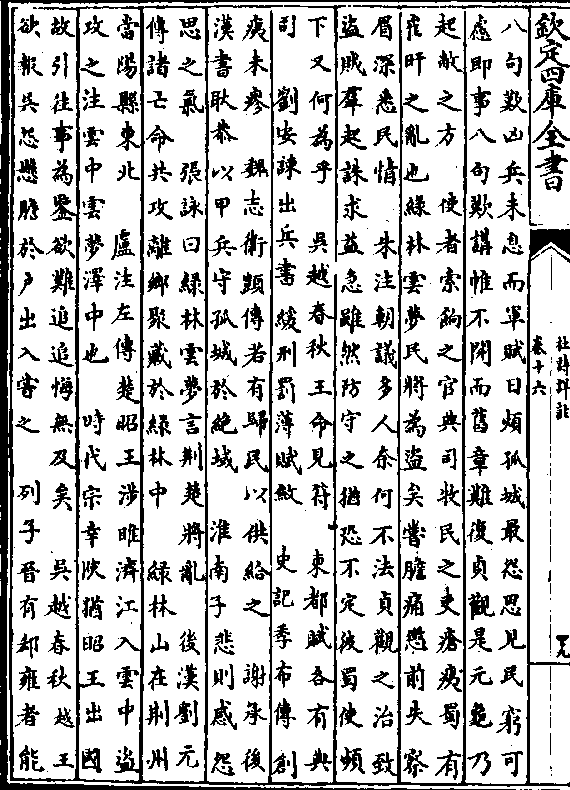 欽定四庫全書
杜詩詳註
卷十六
八句歎凶兵未息而軍賦日頻孤城最怨思見民窮可
慮即事八句歎講帷不開而舊章難復貞觀是元龜乃
起敝之方 使者索餉之官典司牧民之吏瘡痍蜀有
崔旰之亂也綠林雲夢民將為盜矣嘗膽痛懲前失察
眉深悉民情 朱注朝議多人奈何不法貞觀之治致
盜賊羣起誅求益急雖然防守之猶恐不定彼蜀使頻
下又何為乎 吳越春秋王命見符 東都賦各有典
司 劉安諫出兵書緩刑罰薄賦斂 史記季布傳創
痍未瘳 魏志衛覬傳若有歸民以供給之 謝承後
漢書耿恭以甲兵守孤城於絶域 淮南子悲則感怨
思之氣 張詠曰綠林雲夢言荆楚將亂 後漢劉元
傳諸亡命共攻離鄉聚藏於綠林中 綠林山在荆州
當陽縣東北 盧注左傳楚昭王涉睢濟江入雲中盜
攻之注雲中雲夢澤中也 時代宗幸陜猶昭王出國
故引往事為鑒欲難追追悔無及矣 吳越春秋越王
欲報吳怨懸膽於户出入嘗之 列子晉有郄雍者能